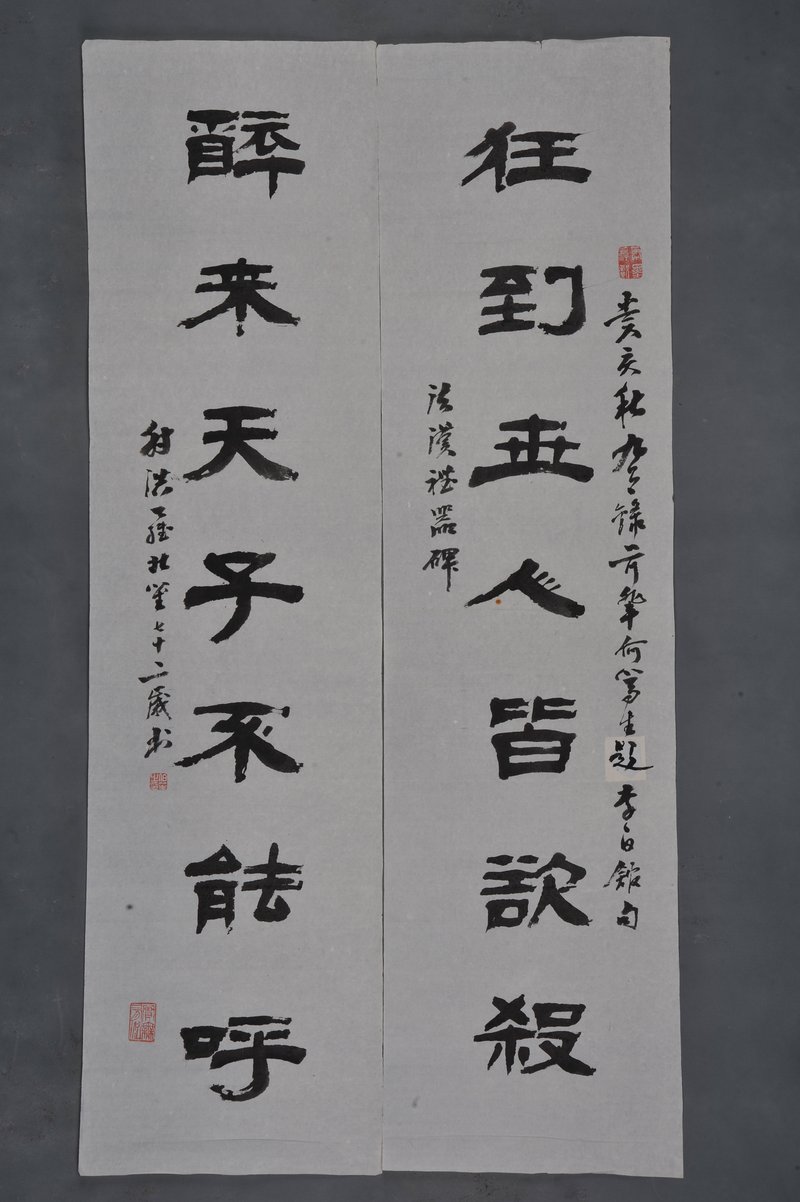 癸亥秋九月錄前輩何篤生題李白館句
狂到世人皆欲殺
法漢禮器碑
醉來天子不能呼
射洪羅壯
七十二歲書